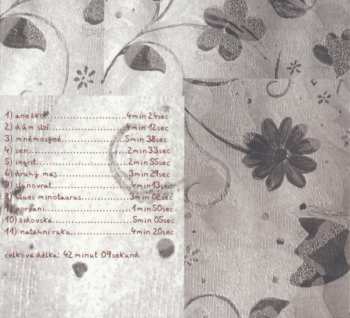 1) anežka..................4min 24sec
2) dům stojí..................4min 12sec
3) mnémosyné..................5min 38sec
4) sen..................2min 33sec
5) ingrid..................2min 55sec
6) druhý més..................3min 29sec
4min 13sec
minotaurus..................3min 02sec
1min 50sec
10) šidovská..................5min 05sec
11) natáhni ruku..................4min 20sec
celková délka: 42 minut 09 sekund